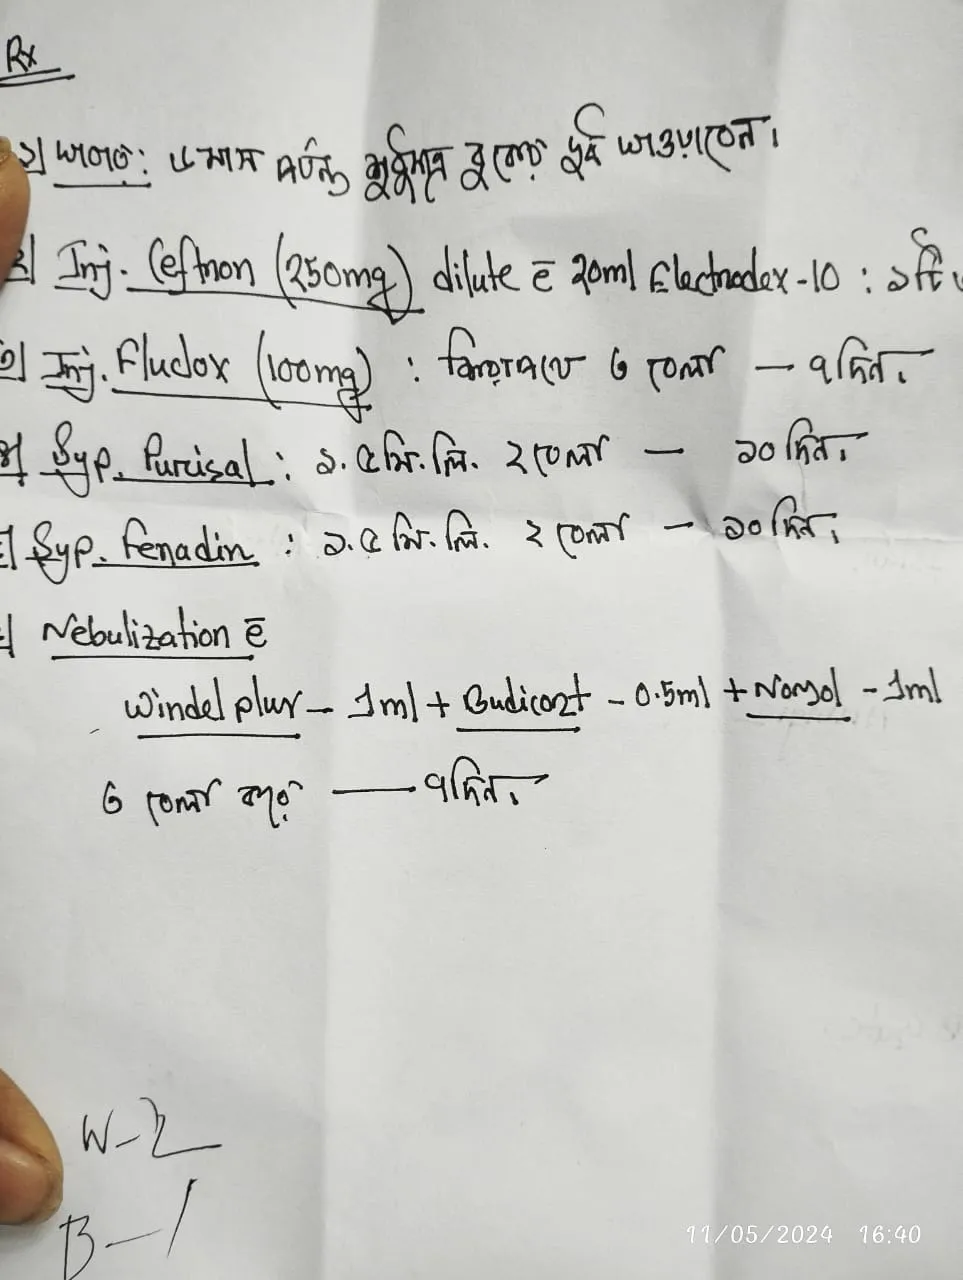 Rx
১) খাবার: ৬ মাস পর্যন্ত শুধুমাত্র বুকের দুধ খাওয়াবেন।
২) Inj. Ceftron (250mg) dilute c̄ 20ml Electrodex-10 : ১টি
৩) Inj. Fludox (100mg) : শিরাপথে ৬ বেলা — ৭ দিন।
৪) Syp. Purisal : ১.৫ মি.লি. ২ বেলা — ১০ দিন।
Syp. Fenadin : ১.৫ মি.লি. ২ বেলা — ১০ দিন।
Nebulization c̄
Windel plus – 1ml + Budicort – 0.5ml + Norsol – 1ml
৬ বেলা করে — ৭ দিন।
W-2
B-1
11/05/2024 16:40